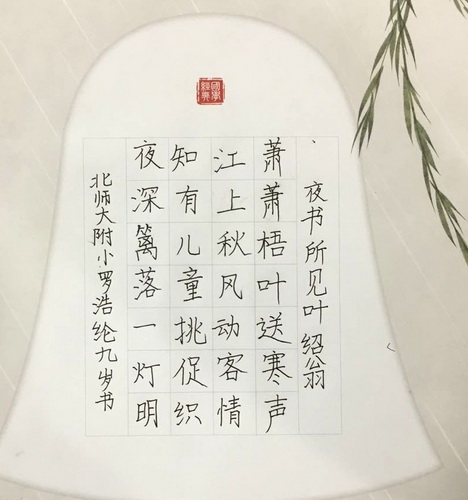 國學經典
夜书所见叶绍翁
萧萧梧叶送寒声
江上秋风动客情
知有儿童挑促织
夜深篱落一灯明
北师大附小罗浩纶九岁书